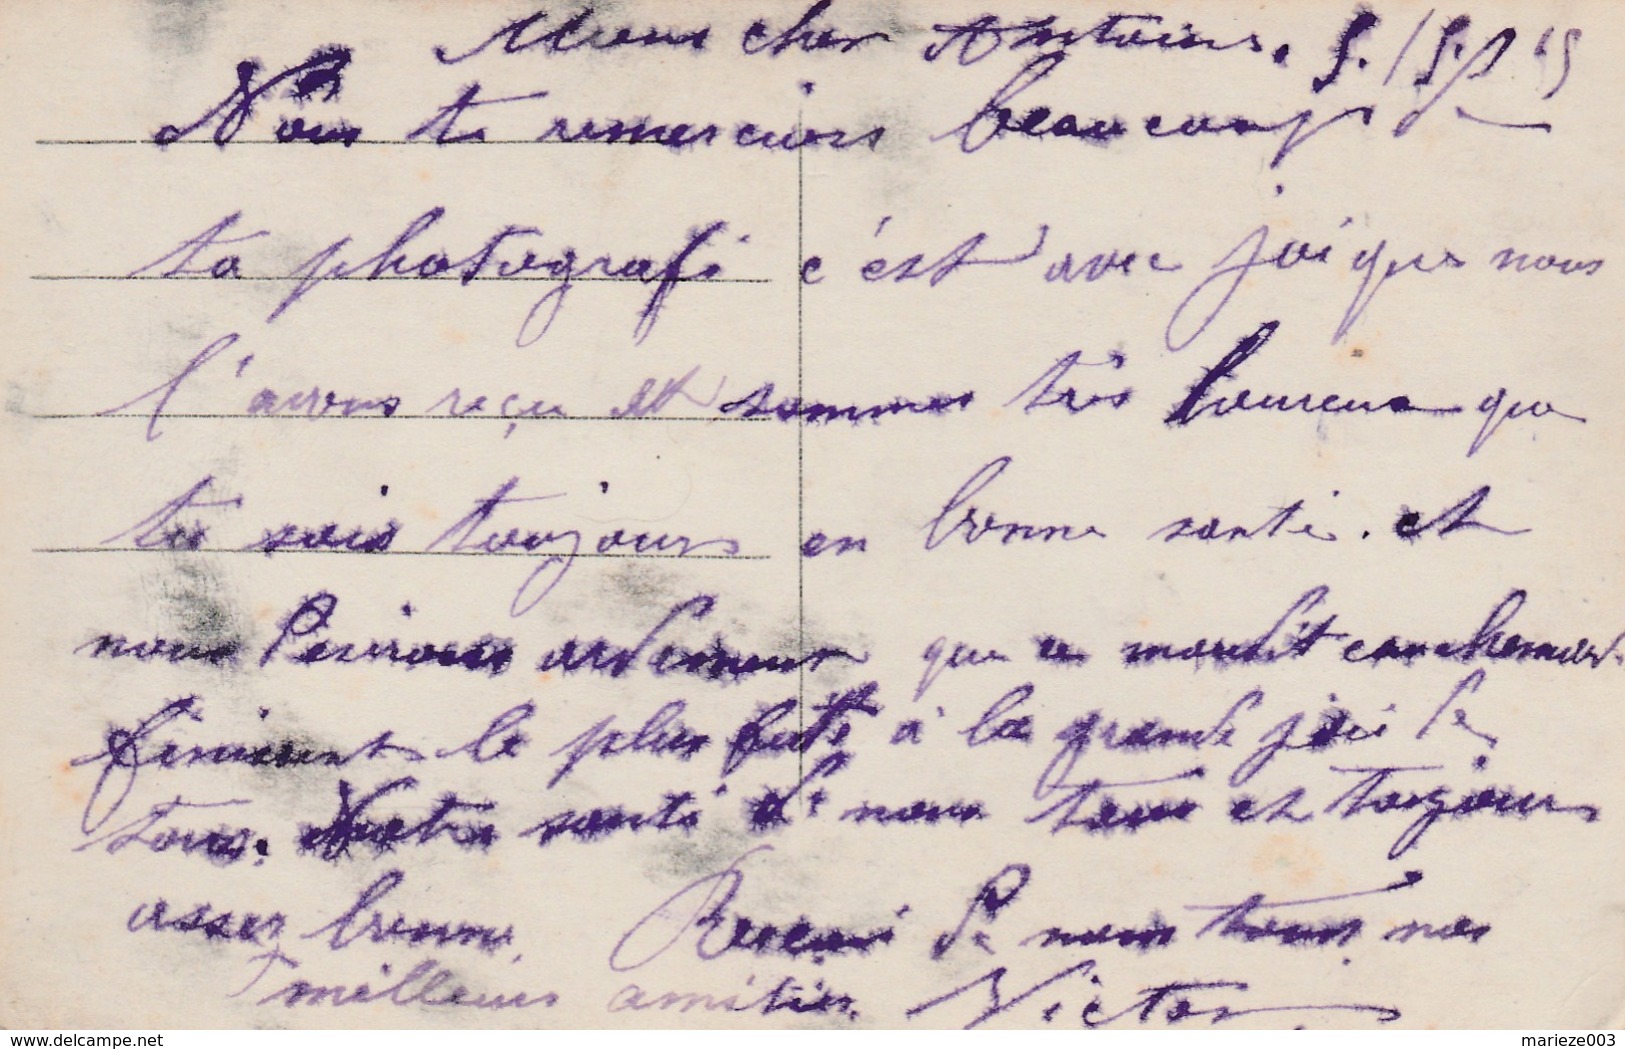 Mon cher Antoine.
Nous te remercions beaucoup de
ta photografi c'est avec joi que nous
l'avons reçu et sommes très houreux que
tu sois toujours en bonne santé. et
nous désirons ardemment que ce maudit cauchemar
finissent le plus à la grande joie de
tous. Notre santé de nous tous et toujours
asser bonne. Reçoi de nous tous nos
meilleurs amitiés. Victor
delcampe.net
marieze003